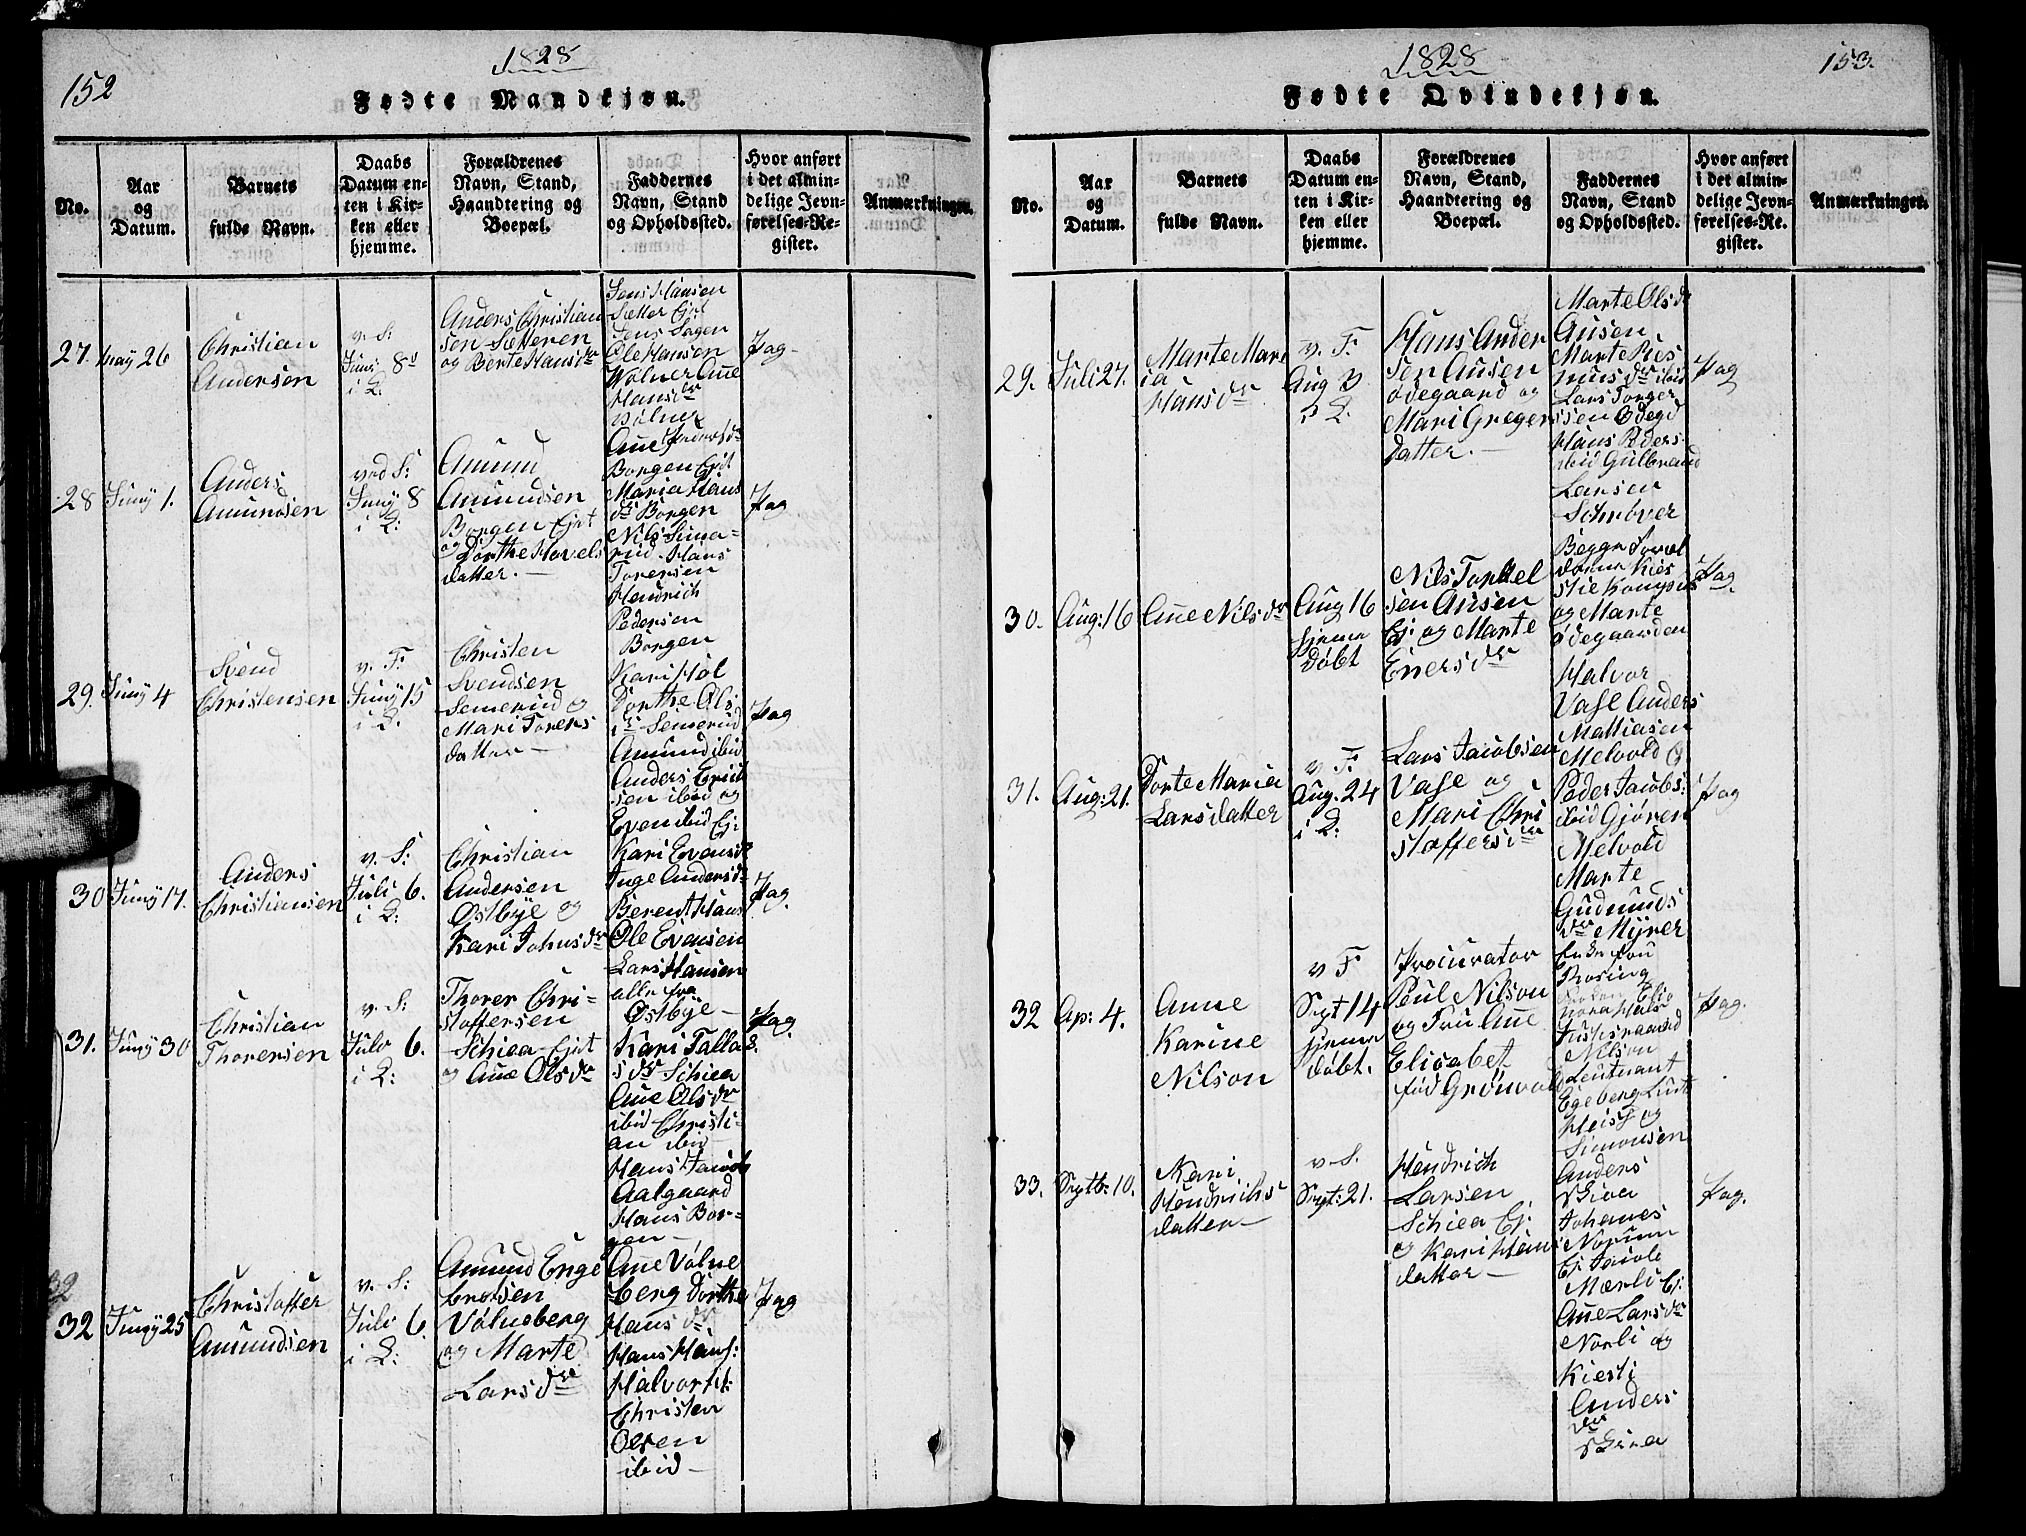 152
1828
Fødte Mandkjøn.
No.
Aar
og
Datum.
Barnets
fulde Navn.
Daabs
Datum en-
ten i Kir-
ken eller
hjemme.
Forældrenes
Navn, Stand,
Haandtering og
Boepæl.
Faddernes
Navn, Stand
og Opholdssted.
Hvor anført
i det almin-
delige Jevn-
førelses-Re-
gister.
Anmærkninger.
27.
May 26
Christian
Andersen
v. S:
Juni 8d
i K:
Anders Christian
sen Sætteren
og Berte Hansdr
Jens Hansen
Sætter Ejet
Jens Sagen
Ole Hansen
Wolner Ane
Hansdr
Wolner
Pag
28
Juny 1.
Anders
Amundsen
ved S:
Juny 8
i K:
Amund
Amundsen
Borgen Ejet
og Dorthe Hovels
datter.
Ane Pedersdr
Borgen Ejet
Maria Hans
dr Borgen
Nils Sima-
rud Hans
Torersen
Hendrich
Pedersen
Borgen
Pag
29.
Juny 4
Svend
Christensen
v. F.
Juny 15
i K.
Christen
Svendsen
Semerud og
Mari Torers
datter
Kari Hol
Dorthe Ols
dr Semerud
Amund ibid
Anders Erich
sen ibid og
Even ibid Ej:
Pag
30
Juny 17.
Anders
Christiansen
v. S:
Juli 6.
i K:
Christian
Andersen
Østbye og
Kari Johnsdr
Kari Evensdr
Inge Andersdr
Berent Hans
Ole Evensen
Lars Hansen
alle fra
Østbye
Pag.
31.
Juny 30
Christian
Thorersen
v. S:
July 6.
i K:
Thorer Chri-
stoffersen
Schiea Ejet
og Ane Olsdr
Kari Talla
sdr Schiea
Ane Olsdr
ibid Christi-
an ibid
Hans Jacob
Aalgaard
Hans Bor-
gen
Pag.
8.
32
32
Juny 25
Christoffer
Amundsen
v. S:
July 6.
i K:
Amund Enge
bretsen
Volneberg
og Marte
Larsdr
Ane Volne
berg Dorthe
Hansdr
Hans Hans:
Halvor H:
Christen
Olsen
ibid
Pag
1828
153.
Fødte Qvindekjøn.
No.
Aar
og
Datum.
Barnets
fulde Navn.
Daabs
Datum en-
ten i Kir-
ken eller
hjemme.
Forældrenes
Navn, Stand,
Haandtering og
Boepæl.
Faddernes
Navn, Stand
og Opholdssted.
Hvor anført
i det almin-
delige Jevn-
førelses-Re-
gister.
Anmærkninger.
29.
Juli 27.
Marte Mari
ia
Hansdr
v. F.
Aug 3
i K.
Hans Ander
sen Ausen
Ødegaard og
Mari Greger
datter.
Marte Olsdr
Ausen
Marte Ries
mus dr ibid
Lars Torger
ssen Ødegd
Hans Peders
ibid Gulbrand
Larsen
Schrøver
Pag
30.
Aug: 16
Ane Nilsdr
Aug 16
hjeme
døbt
Nils Torkel
sen Ausen
Ej: og Marte
Enersdr
og Marte
Ødegaarden
Pag
31.
Aug: 21.
Dorte Maria
Larsdatter
v. F.
Aug. 24
i K:
Lars Jacobsen
Vase og
Mari Chri
stoffersdr
Halvor
Vase Anders
Mathiesen
Melvold og
Peder Jacobs:
ibid Gjøren
Melvold
Marte
Gudmunds
dr Myrer
Pag
32
Ap: 4.
Anne
Karine
Nilson
v F
Sept 14
hjeme
døbt.
Procurator
Poul Nilson
og Fru Ane
Elisabet
fød Grønvold
Nilson
Leutnant
Egeberg Lieut
Heiss og
Simonsen
Pag.
33.
Septb: 10.
Kari
Hendrichs
datter
v. S.
Sept: 21.
Hendrich
Larsen
Schiea Ej:
og Kari Hans
datter
Anders
Skiea
Johanes
Norum
Ej: Jacob
Mærli Ej:
Ane Larsdr
Norli og
Kiesti
Anders
dr
Skiea
Pag.